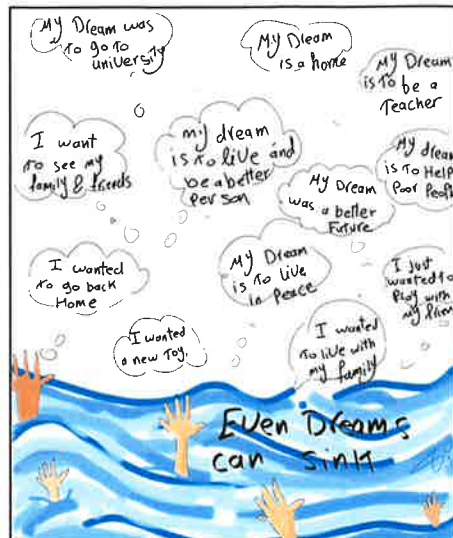 My Dream was
to go to
university
My Dream
is a home
My Dream
is to be a
Teacher
I want
to see my
family & friends
my dream
is to live and
be a better
person
My dream
is to Help
Poor
My Dream
was a better
Future
I wanted
to go back
Home
My Dream
is to live
in Peace
I just
wanted to
play with
my
I wanted
a new Toy.
I wanted
to live with
my family
Even Dreams
can sink